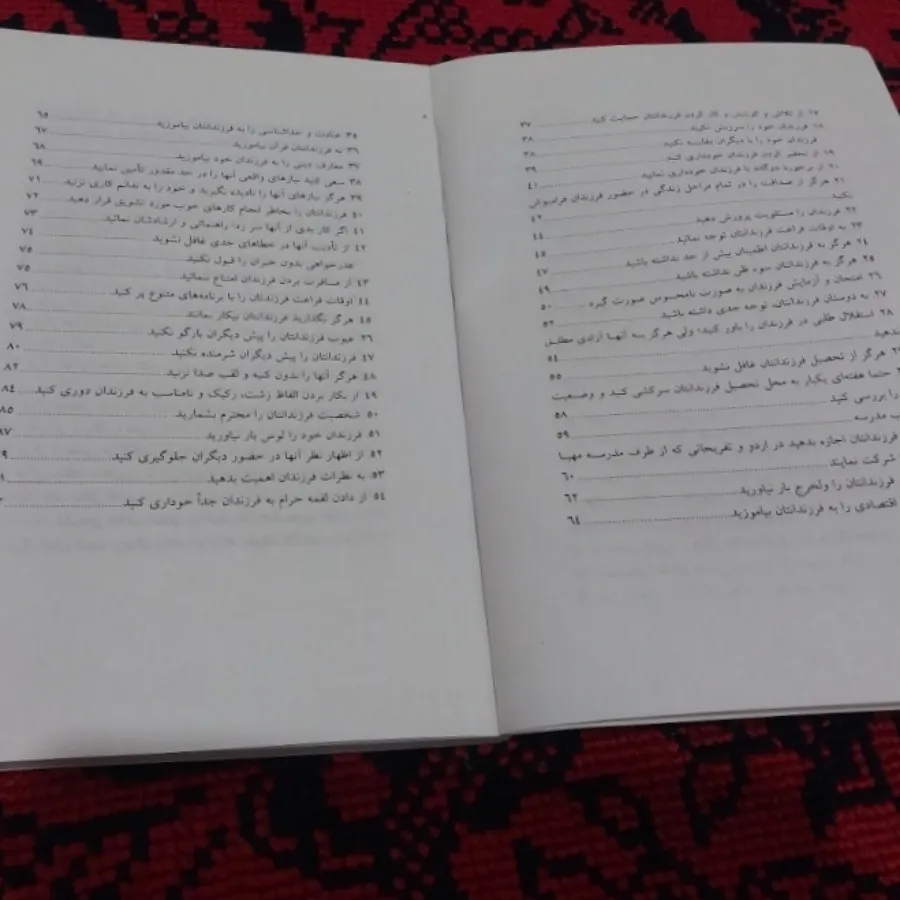 ۱۷ از تلاش و کوشش و کار کردن فرزندانتان حمایت کنید ۳۷
۱۸ فرزندان خود را سرزنش نکنید ۳۸
فرزندان خود را با دیگران مقایسه نکنید ۳۸
۱۹ از تحقیر کردن فرزندان خودداری کنید ۳۹
۲۰ از برخورد دوگانه با فرزندان خودداری نمایید ۴۱
۲۱ هرگز از صداقت را در تمام مراحل زندگی در حضور فرزندان فراموش
نکنید ۴۲
۲۲ فرزندان را مسئولیت پرورش دهید ۴۴
۲۳ به اوقات فراغت فرزندانتان توجه نمائید ۴۵
۲۴ هرگز به فرزندانتان اطمینان بیش از حد نداشته باشید ۴۷
۲۵ هرگز به فرزندانتان سوء ظن نداشته باشید ۴۹
۲۶ امتحان و آزمایش فرزندان به صورت نامحسوس صورت گیرد ۵۰
۲۷ به دوستان فرزندانتان، توجه جدی داشته باشید ۵۲
۲۸ استقلال طلبی در فرزندان را باور کنید؛ ولی هرگز به آنها آزادی مطلق
ندهید ۵۴
هرگز از تحصیل فرزندانتان غافل نشوید ۵۵
حتما هفته‌ای یکبار به محل تحصیل فرزندانتان سرکشی کنید و وضعیت
را بررسی کنید ۵۸
مدرسه ۵۹
فرزندانتان اجازه بدهید در اردو و تفریحاتی که از طرف مدرسه مهیا
شرکت نمایند ۶۰
فرزندانتان را ولخرج بار نیاورید ۶۲
اقتصادی را به فرزندانتان بیاموزید ۶۴
۳۵ عبادت و خداشناسی را به فرزندانتان بیاموزید ۶۵
۳۶ به فرزندانتان قرآن بیاموزید ۶۷
۳۷ معارف دینی را به فرزندان خود بیاموزید ۶۸
۳۸ سعی کنید نیازهای واقعی آنها را در حد مقدور تأمین نمایید ۶۹
۳۹ هرگز نیازهای آنها را نادیده نگیرید و خود را به نفائم کاری نزنید ۷۱
۴۰ فرزندانتان را بخاطر انجام کارهای خوب مورد تشویق قرار دهید ۷۲
۴۱ اگر کار بدی از آنها سر زد؛ راهنمائی و ارشادشان نمائید ۷۳
۴۲ از تأدیب آنها در خطاهای جدی غافل نشوید ۷۴
عذرخواهی بدون جبران را قبول نکنید ۷۵
۴۳ از مسافرت بردن فرزندان امتناع ننمائید ۷۵
۴۴ اوقات فراغت فرزندتان را با برنامه‌های متنوع پر کنید ۷۶
۴۵ هرگز نگذارید فرزندتان بیکار بمانند ۷۸
۴۶ عیوب فرزندانتان را پیش دیگران بازگو نکنید ۷۹
۴۷ فرزندانتان را پیش دیگران شرمنده نکنید ۸۰
۴۸ هرگز آنها را بدون کنیه و لقب صدا نزنید ۸۲
۴۹ از بکار بردن الفاظ زشت، رکیک و نامناسب به فرزندان دوری کنید ۸۴
۵۰ شخصیت فرزندانتان را محترم بشمارید ۸۵
۵۱ فرزندان خود را لوس بار نیاورید ۸۷
۵۲ از اظهار نظر آنها در حضور دیگران جلوگیری کنید
۵۳ به نظرات فرزندان اهمیت بدهید
۵۴ از دادن لقمه حرام به فرزندان جداً خوداری کنید